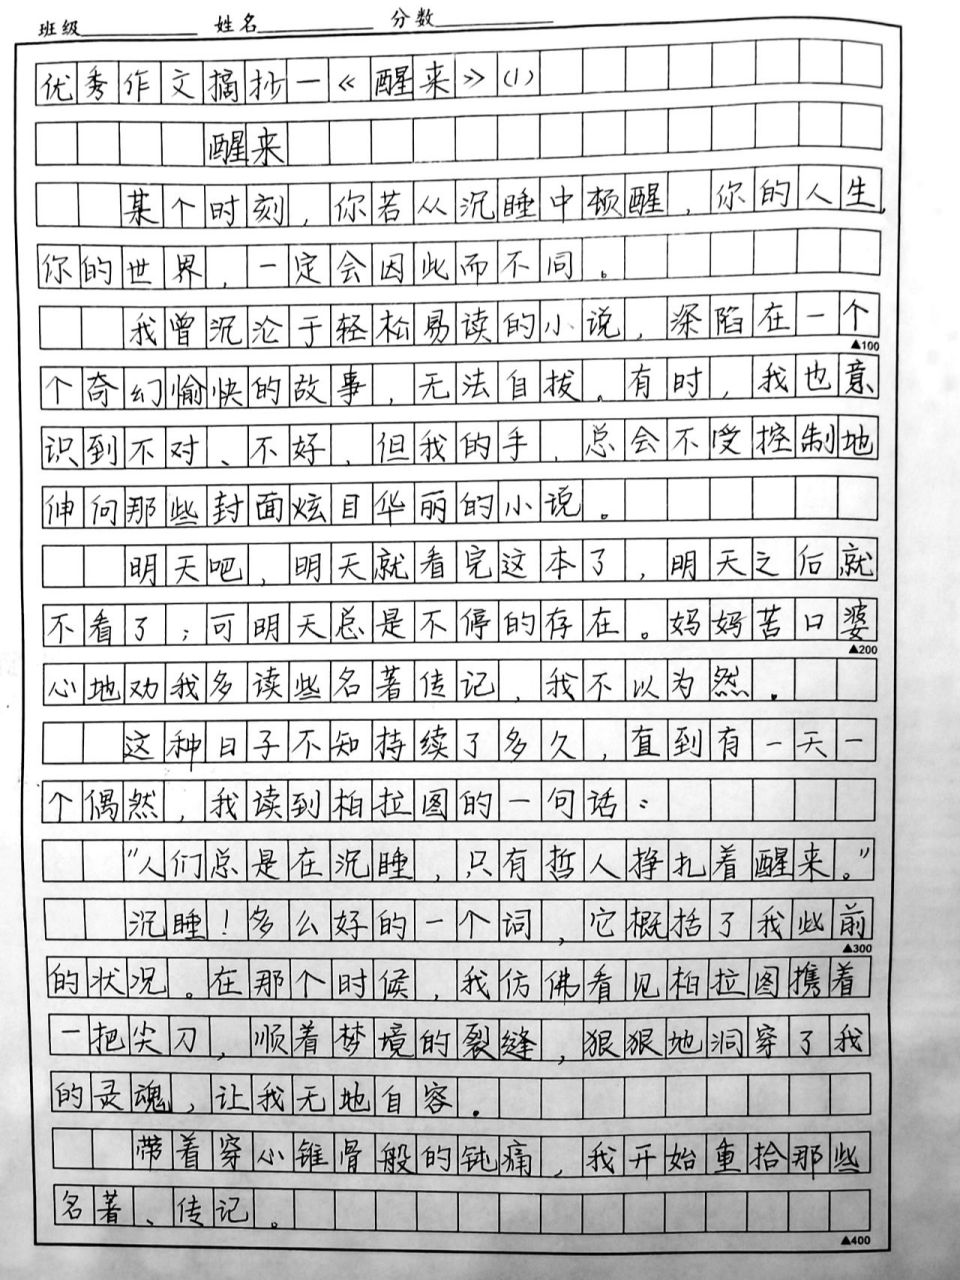 班级 姓名 分数
优秀作文摘抄一《醒来》(1)
醒来
某个时刻，你若从沉睡中顿醒，你的人生，
你的世界，一定会因此而不同。
我曾沉沦于轻松易读的小说，深陷在一个
▲100
个奇幻愉快的故事，无法自拔。有时，我也意
识到不对、不好，但我的手，总会不受控制地
伸向那些封面炫目华丽的小说。
明天吧，明天就看完这本了，明天之后就
不看了；可明天总是不停的存在。妈妈苦口婆
▲200
心地劝我多读些名著传记，我不以为然。
这种日子不知持续了多久，直到有一天一
个偶然，我读到柏拉图的一句话：
“人们总是在沉睡，只有哲人挣扎着醒来。”
沉睡！多么好的一个词，它概括了我些前
▲300
的状况。在那个时候，我仿佛看见柏拉图携着
一把尖刀，顺着梦境的裂缝，狠狠地洞穿了我
的灵魂，让我无地自容。
带着穿心锥骨般的钝痛，我开始重拾那些
名著、传记。
▲400